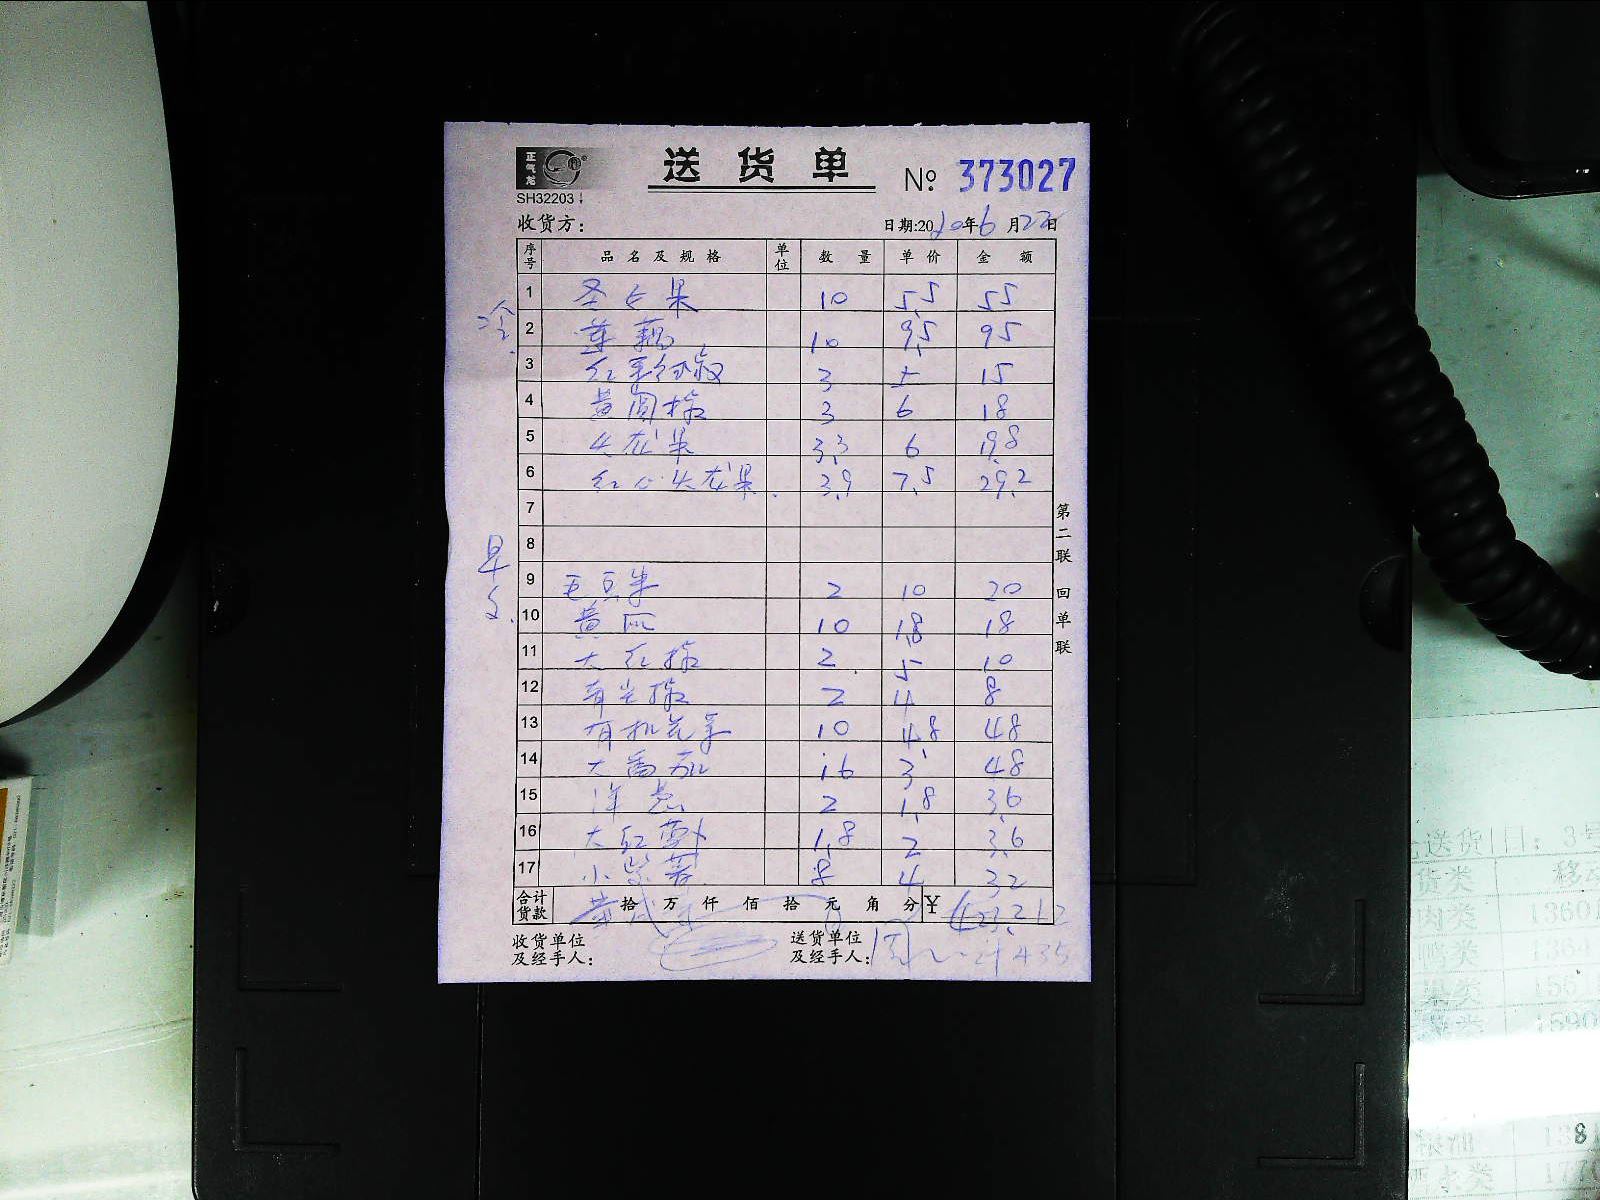 正气龙
送货单
№ 373027
SH32203
收货方：
日期:2020年6月22日
序号 品名及规格 单位 数量 单价 金额
冷
1 圣女果 10 5.5 55
2 莲藕 10 9.5 95
3 红 3 5 15
4 黄圆椒 3 6 18
5 火龙果 3.3 6 19.8
6 红心火龙果 3.9 7.5 29.2
7
8
早
9 毛豆米 2 10 20
10 黄瓜 10 1.8 18
11 大红椒 2 5 10
12 青尖椒 2 4 8
13 有机花菜 10 4.8 48
14 大番茄 16 3 48
15 洋葱 2 1.8 3.6
16 大红萝卜 1.8 2 3.6
17 小紫薯 8 4 32
合计货款 拾 万 仟 佰 拾 元 角 分 ¥ 423.2
收货单位及经手人：
送货单位及经手人：
435
第二联 回单联
送货日：3号
货类 移动
肉类 1360
鸭类
果类
类 1590
粮油 1381
水类 1770